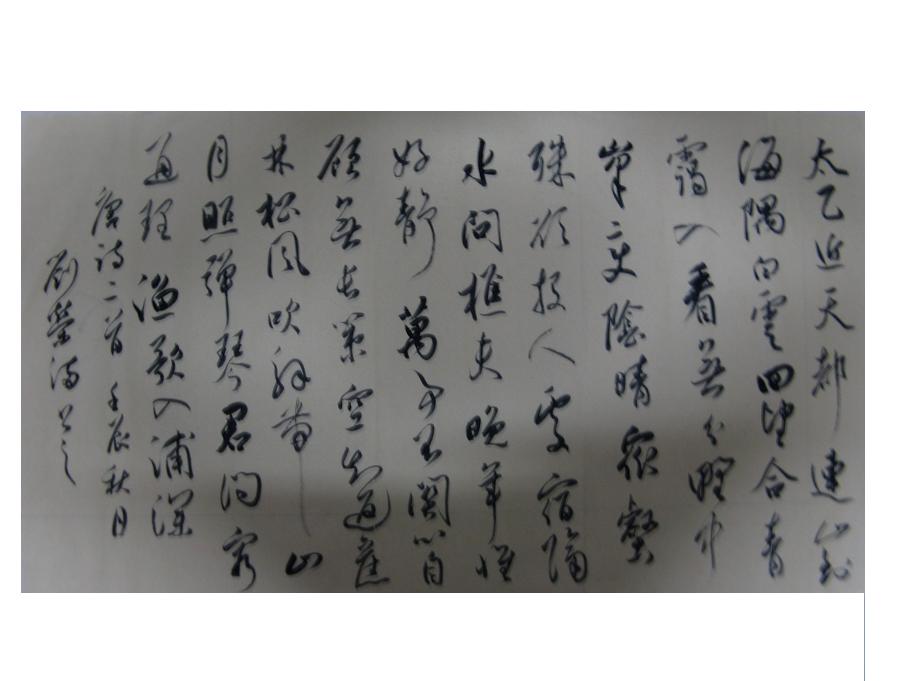 太乙近天都連山到
海隅白雲回望合青
靄入看無分野中
峯變陰晴衆壑
殊欲投人處宿隔
水問樵夫晚年惟
好靜萬事不關心自
顧無長策空知返舊
林松風吹解帶山
月照彈琴君問窮
通理漁歌入浦深
唐詩二首 壬辰秋日
劉榮 书之